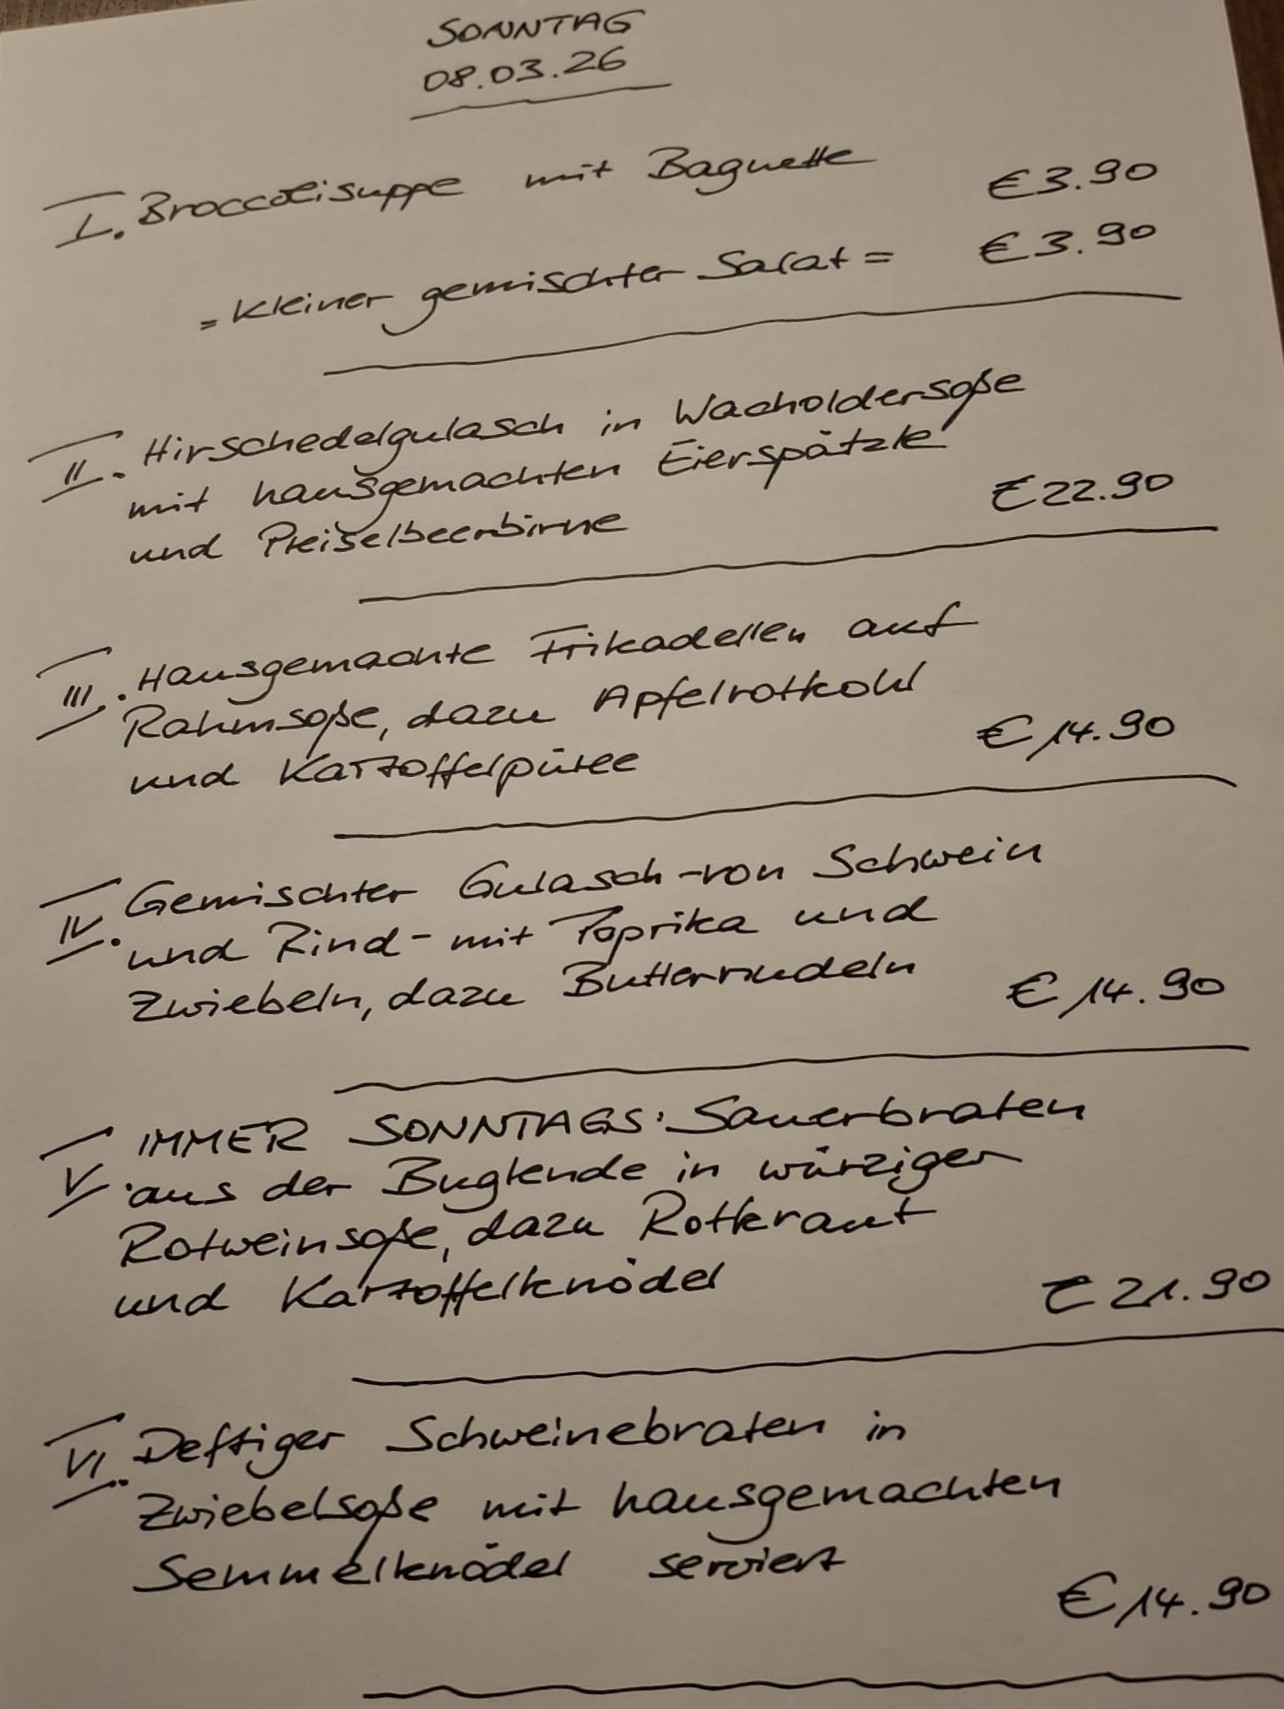 SONNTAG
08.03.26
I. Broccolisuppe mit Baguette
€ 3.90
= Kleiner gemischter Salat = € 3.90
II. Hirschedelgulasch in Wacholdersoße
mit hausgemachten Eierspätzle
und Preiselbeerbirne € 22.90
III. Hausgemachte Frikadellen auf
Rahmsoße, dazu Apfelrotkohl
und Kartoffelpüree € 14.90
IV. Gemischter Gulasch - von Schwein
und Rind - mit Paprika und
Zwiebeln, dazu Butternudeln € 14.90
V. IMMER SONNTAGS: Sauerbraten
aus der Buglende in würziger
Rotweinsoße, dazu Rotkraut
und Kartoffelknödel € 21.90
VI. Deftiger Schweinebraten in
Zwiebelsoße mit hausgemachten
Semmelknödel serviert
€ 14.90